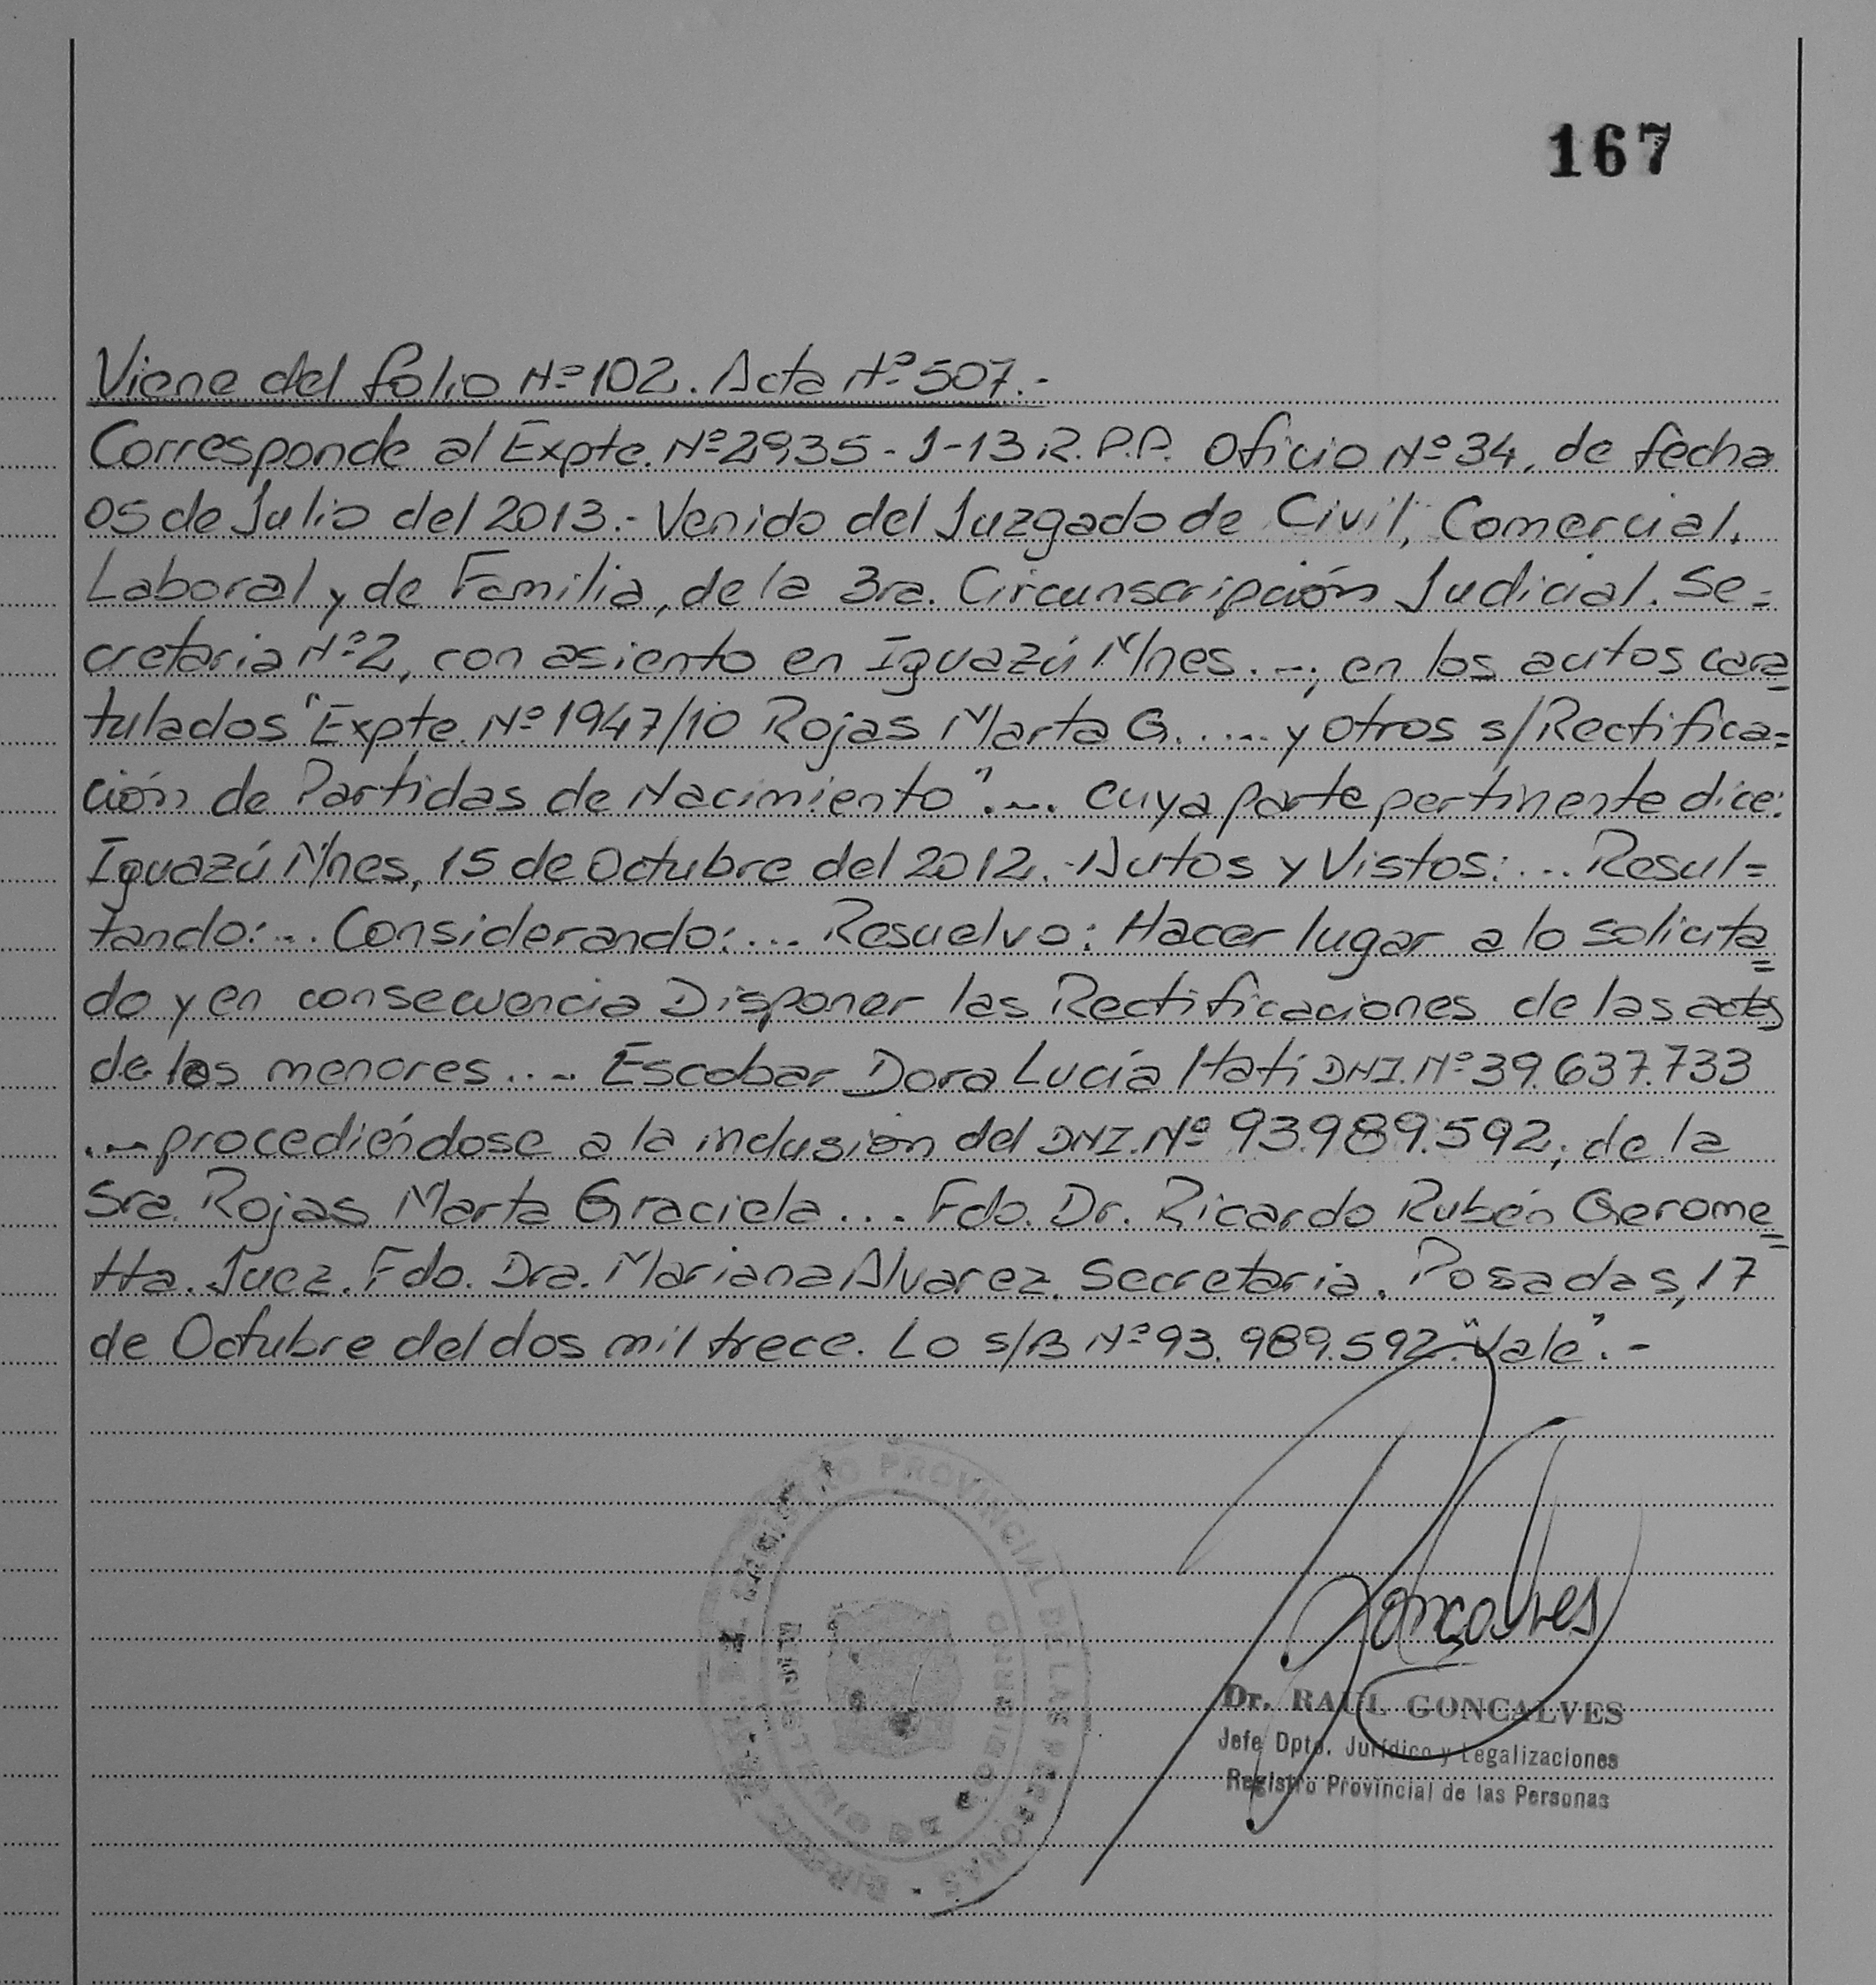 167
Viene del folio Nº 102. Acta Nº 507.-
Corresponde al Expte. Nº 2935-J-13 R.P.P. Oficio Nº 34, de fecha
05 de Julio del 2013.- Venido del Juzgado de Civil, Comercial,
Laboral y de Familia, de la 3ra. Circunscripción Judicial. Se=
cretaria Nº 2, con asiento en Iguazú Mnes. -; en los autos cara
tulados "Expte. Nº 1947/10 Rojas Marta G. .... y otros s/Rectifica=
ción de Partidas de Nacimiento".-. cuya parte pertinente dice:
Iguazú Mnes, 15 de Octubre del 2012.- Autos y Vistos:... Resul=
tando:... Considerando:... Resuelvo: Hacer lugar a lo solicita=
do y en consecuencia Disponer las Rectificaciones de las actas
de los menores ... Escobar Dora Lucía Hati DNI. Nº 39.637.733
... procediéndose a la inclusión del DNI. Nº 93.989.592, de la
Sra. Rojas Marta Graciela ... Fdo. Dr. Ricardo Rubén Gerome=
tta. Juez. Fdo. Dra. Mariana Alvarez. Secretaria. Posadas, 17
de Octubre del dos mil trece. Lo s/B Nº 93.989.592. "Vale".-
REGISTRO PROVINCIAL DE LAS PERSONAS
MINISTERIO DE GOBIERNO
Goncalves
Dr. RAUL GONCALVES
Jefe Dpto. Jurídico y Legalizaciones
Registro Provincial de las Personas